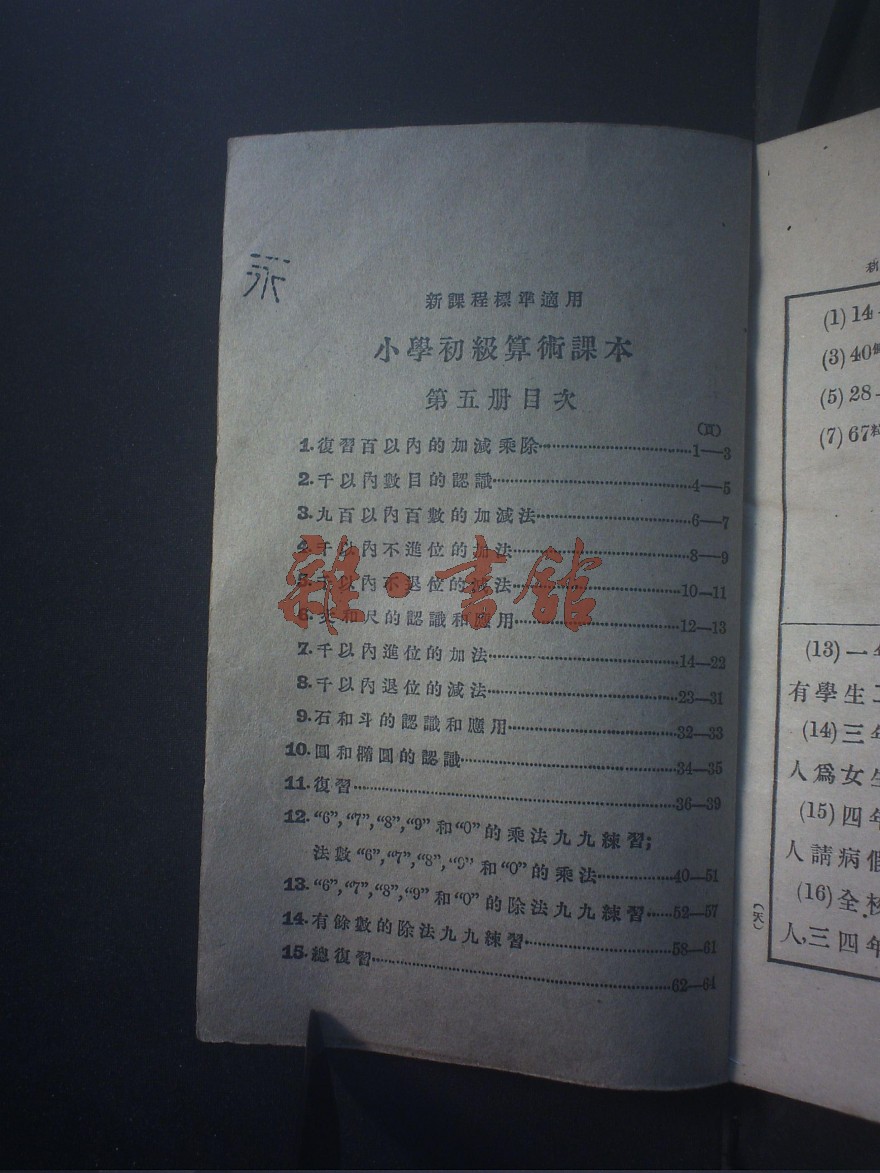 新課程標準適用
小學初級算術課本
第五册目次
(頁)
1.復習百以內的加減乘除……1—3
2.千以內數目的認識……4—5
3.九百以內百數的加減法……6—7
4.千以內不進位的加法……8—9
5.千以內不退位的減法……10—11
6.丈和尺的認識和應用……12—13
7.千以內進位的加法……14—22
8.千以內退位的減法……23—31
9.石和斗的認識和應用……32—33
10.圓和橢圓的認識……34—35
11.復習……36—39
12.“6”,“7”,“8”,“9”和“0”的乘法九九練習;
法數“6”,“7”,“8”,“9”和“0”的乘法……40—51
13.“6”,“7”,“8”,“9”和“0”的除法九九練習……52—57
14.有餘數的除法九九練習……58—61
15.總復習……62—64
雜·書館
(1)14
(3)40
(5)28
(7)67粒
(13)一
有學生
(14)三
人爲女生
(15)四年
人請病假
(16)全校
人,三四年
(天)